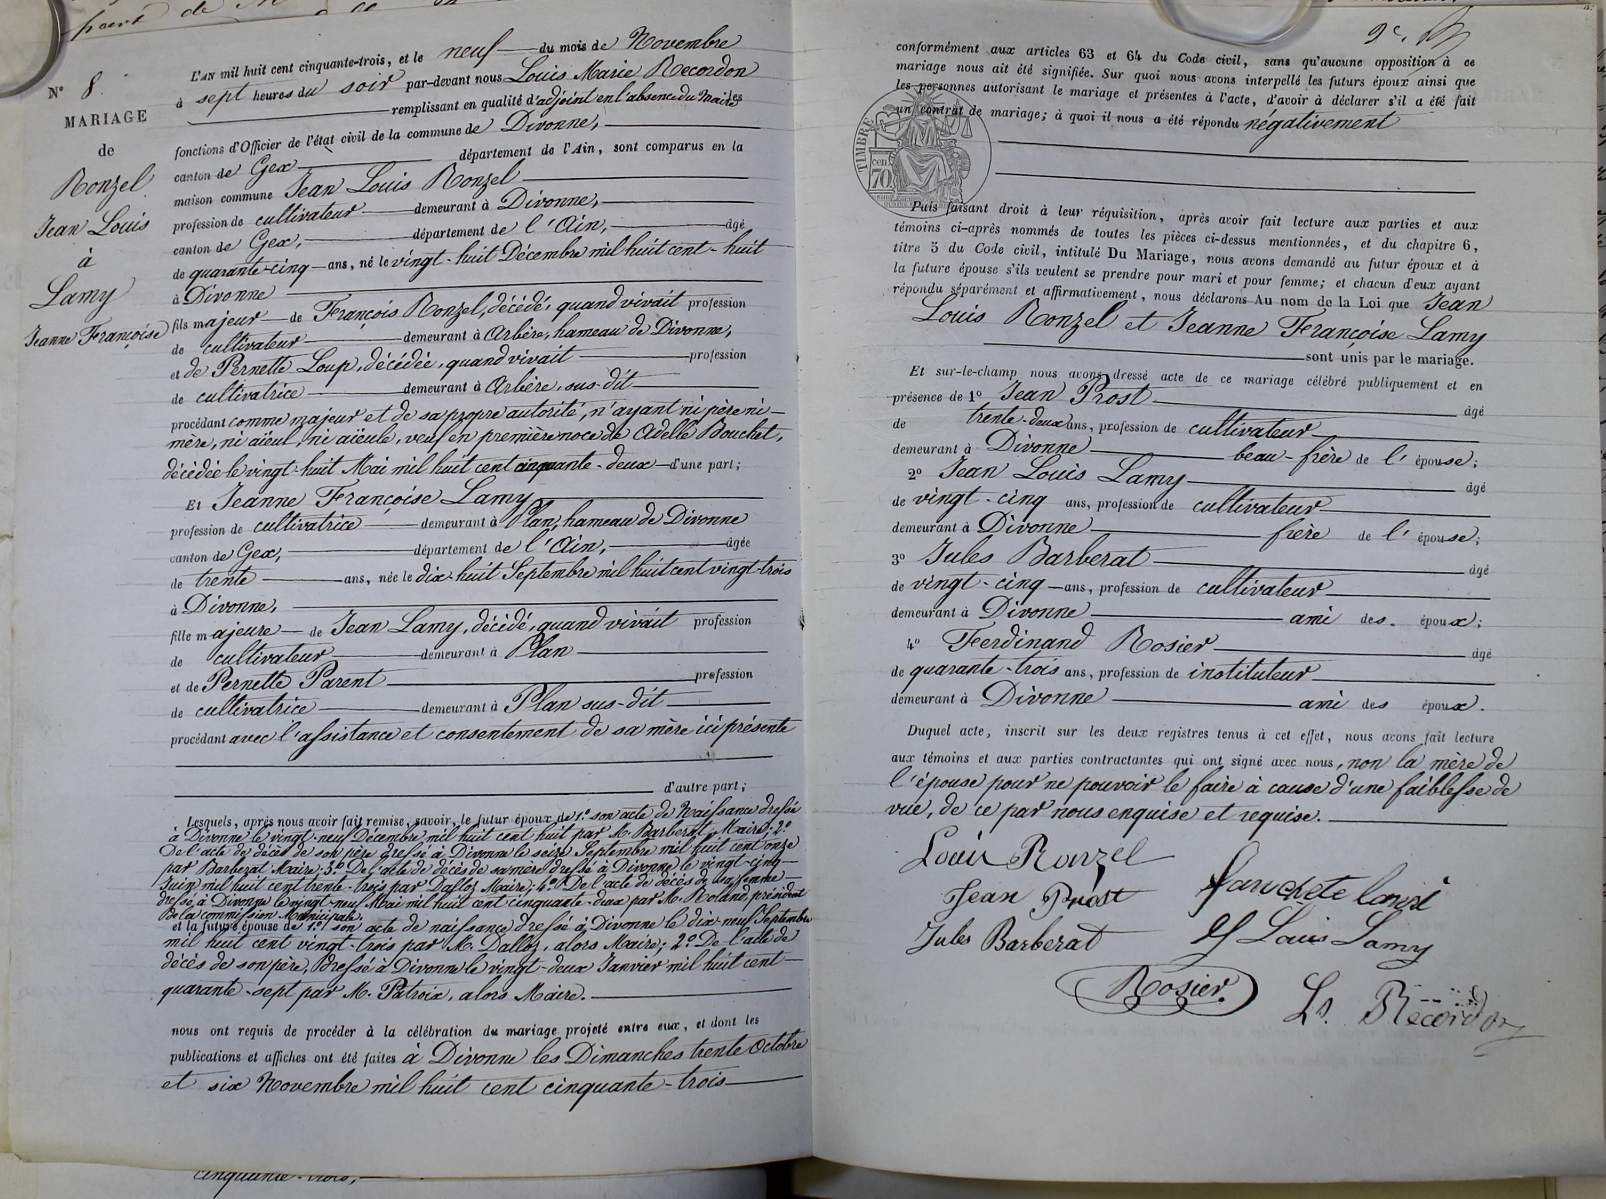 point de
N° 8.
MARIAGE
de
Ronzel
Jean Louis
à
Lamy
Jeanne Françoise
L'AN mil huit cent cinquante-trois, et le neuf du mois de Novembre
à sept heures du soir par-devant nous Louis Marie Recordon
remplissant en qualité d'adjoint en l'absence du Maire les
fonctions d'Officier de l'état civil de la commune de Divonne,
canton de Gex département de l'Ain, sont comparus en la
maison commune Jean Louis Ronzel
profession de cultivateur demeurant à Divonne,
canton de Gex, département de l'Ain, âgé
de quarante-cinq ans, né le vingt-huit Décembre mil huit cent-huit
à Divonne
fils majeur de François Ronzel, décédé, quand vivait profession
de cultivateur demeurant à Arbère, hameau de Divonne,
et de Pernette Loup, décédée, quand vivait profession
de cultivatrice demeurant à Arbère, sus-dit
procédant comme majeur et de sa propre autorité, n'ayant ni père ni
mère, ni aïeul, ni aïeule, veuf en première noce de Adelle Bouchet,
décédée le vingt-huit Mai mil huit cent cinquante-deux d'une part;
Et Jeanne Françoise Lamy
profession de cultivatrice demeurant à Plan, hameau de Divonne
canton de Gex, département de l'Ain, âgée
de trente ans, née le dix-huit Septembre mil huit cent vingt-trois
à Divonne,
fille majeure de Jean Lamy, décédé, quand vivait profession
de cultivateur demeurant à Plan
et de Pernette Parent profession
de cultivatrice demeurant à Plan sus-dit
procédant avec l'assistance et consentement de sa mère ici présente
d'autre part;
Lesquels, après nous avoir fait remise, savoir, le futur époux de 1° son acte de Naissance dressé
à Divonne le vingt-neuf Décembre mil huit cent huit par M. Barberat, Maire; 2°
De l'acte de décès de son père dressé à Divonne le seize Septembre mil huit cent onze
par Barberat Maire; 3° De l'acte de décès de sa mère dressé à Divonne le vingt-cinq
Juin mil huit cent trente-trois par Dalloz Maire; 4° De l'acte de décès de sa femme
dressé à Divonne le vingt-neuf Mai mil huit cent cinquante-deux par M. Roland, président
De la commission Municipale.
et la future épouse de 1° son acte de naissance dressé à Divonne le dix-neuf Septembre
mil huit cent vingt-trois par M. Dalloz, alors Maire; 2° De l'acte de
décès de son père, Dressé à Divonne le vingt-deux Janvier mil huit cent
quarante-sept par M. Patroix, alors Maire.
nous ont requis de procéder à la célébration du mariage projeté entre eux, et dont les
publications et affiches ont été faites à Divonne les Dimanches trente Octobre
et six Novembre mil huit cent cinquante-trois
cinquante-trois,
conformément aux articles 63 et 64 du Code civil, sans qu'aucune opposition à ce
mariage nous ait été signifiée. Sur quoi nous avons interpellé les futurs époux ainsi que
les personnes autorisant le mariage et présentes à l'acte, d'avoir à déclarer s'il a été fait
un contrat de mariage; à quoi il nous a été répondu négativement
TIMBRE
cen.
70
Puis faisant droit à leur réquisition, après avoir fait lecture aux parties et aux
témoins ci-après nommés de toutes les pièces ci-dessus mentionnées, et du chapitre 6,
titre 5 du Code civil, intitulé Du Mariage, nous avons demandé au futur époux et à
la future épouse s'ils veulent se prendre pour mari et pour femme; et chacun d'eux ayant
répondu séparément et affirmativement, nous déclarons Au nom de la Loi que Jean
Louis Ronzel et Jeanne Françoise Lamy
sont unis par le mariage.
Et sur-le-champ nous avons dressé acte de ce mariage célébré publiquement et en
présence de 1° Jean Prost âgé
de trente-deux ans, profession de cultivateur
demeurant à Divonne beau-frère de l'épouse;
2° Jean Louis Lamy âgé
de vingt-cinq ans, profession de cultivateur
demeurant à Divonne frère de l'épouse;
3° Jules Barberat âgé
de vingt-cinq ans, profession de cultivateur
demeurant à Divonne ami des époux;
4° Ferdinand Rosier âgé
de quarante-trois ans, profession de instituteur
demeurant à Divonne ami des époux.
Duquel acte, inscrit sur les deux registres tenus à cet effet, nous avons fait lecture
aux témoins et aux parties contractantes qui ont signé avec nous, non la mère de
l'épouse pour ne pouvoir le faire à cause d'une faiblesse de
vue, de ce par nous enquise et requise.
Louis Ronzel
Jean Prost
Jules Barberat
Louis Lamy
Rosier
Ls. Recordon